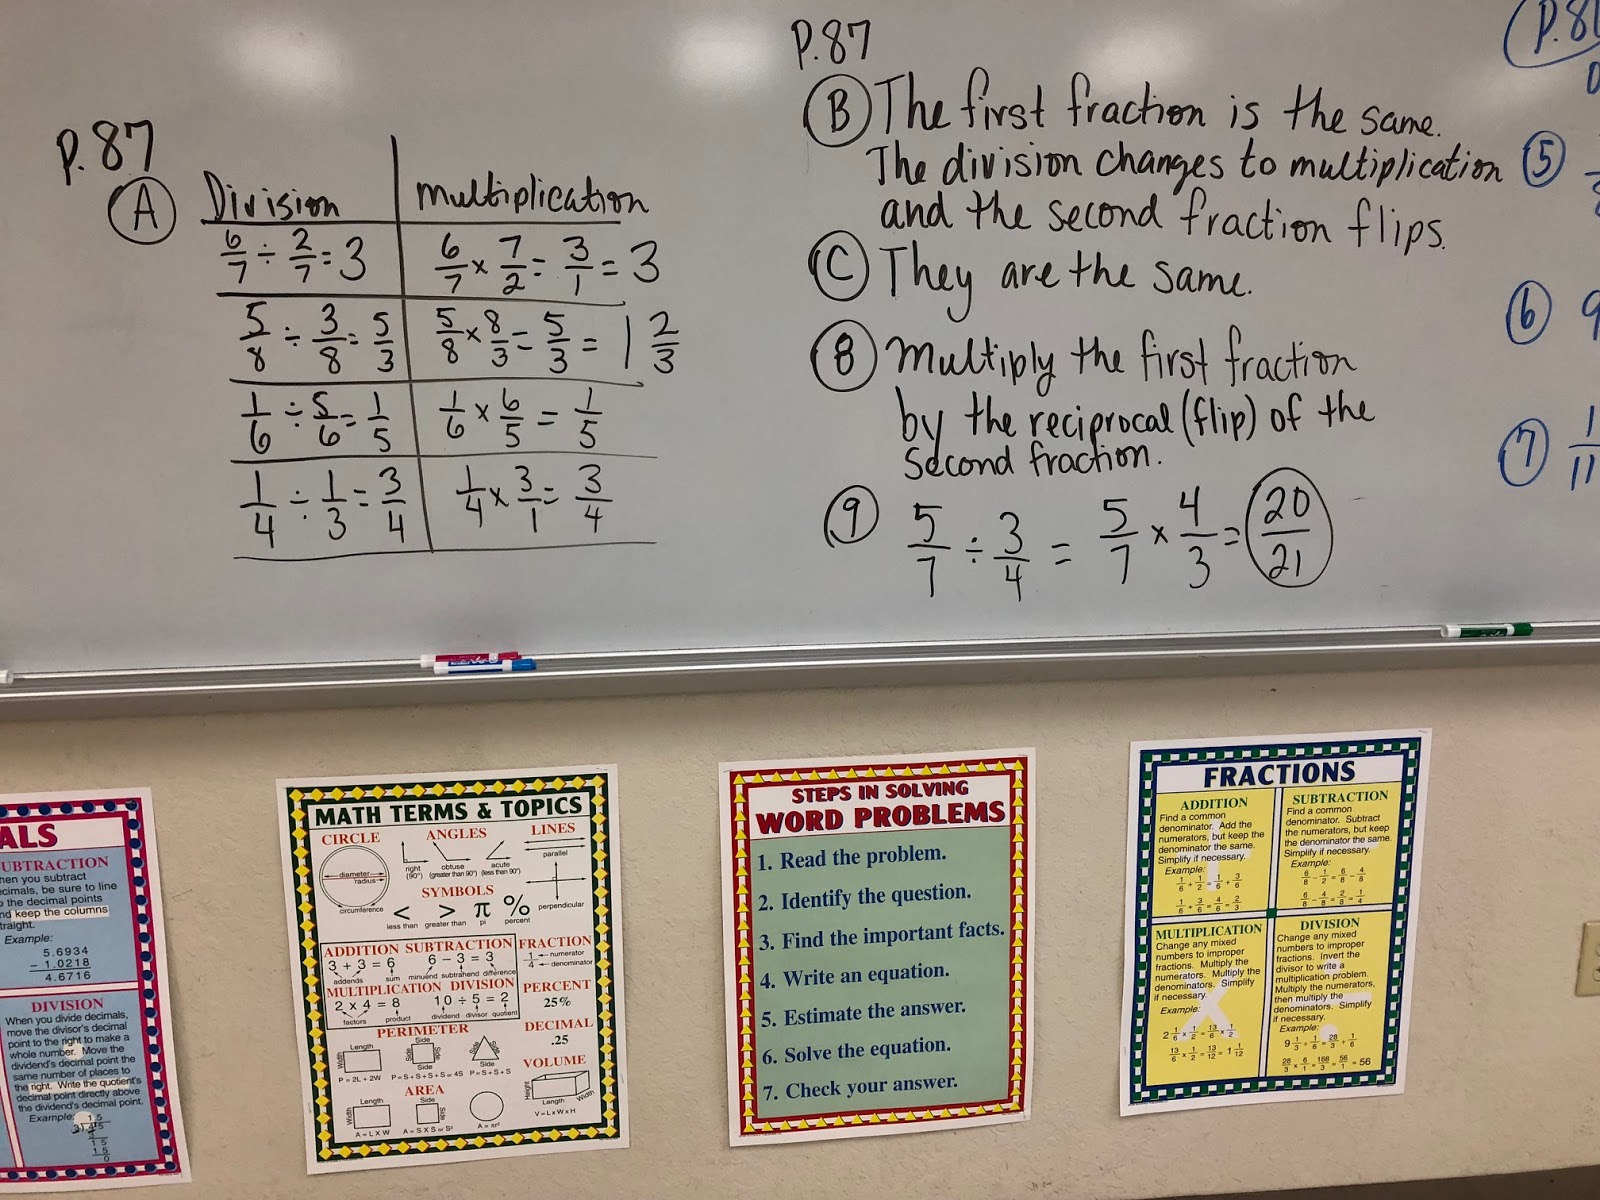 P.87
A Division multiplication
6/7 ÷ 2/7 = 3 6/7 × 7/2 = 3/1 = 3
5/8 ÷ 3/8 = 5/3 5/8 × 8/3 = 5/3 = 1 2/3
1/6 ÷ 5/6 = 1/5 1/6 × 6/5 = 1/5
1/4 ÷ 1/3 = 3/4 1/4 × 3/1 = 3/4
P.87
B The first fraction is the same.
The division changes to multiplication
and the second fraction flips.
C They are the same.
8 Multiply the first fraction
by the reciprocal (flip) of the
second fraction.
9 5/7 ÷ 3/4 = 5/7 × 4/3 = 20/21
5
6 9
7 1/11
ALS
UBTRACTION
hen you subtract
ecimals, be sure to line
the decimal points
nd keep the columns
traight.
Example:
5.6934
- 1.0218
4.6716
DIVISION
When you divide decimals,
move the divisor's decimal
point to the right to make a
whole number. Move the
dividend's decimal point the
same number of places to
the right. Write the quotient's
decimal point directly above
the dividend's decimal point.
Example:
MATH TERMS & TOPICS
CIRCLE
diameter
radius
circumference
ANGLES
right (90°)
obtuse (greater than 90°)
acute (less than 90°)
LINES
parallel
perpendicular
SYMBOLS
< > π %
less than greater than pi percent
ADDITION
3 + 3 = 6
addends sum
SUBTRACTION
6 - 3 = 3
minuend subtrahend difference
FRACTION
1/4
numerator
denominator
MULTIPLICATION
2 x 4 = 8
factors product
DIVISION
10 ÷ 5 = 2
dividend divisor quotient
PERCENT
25%
DECIMAL
.25
PERIMETER
Length Width
P = 2L + 2W
Side Side
P = S + S + S + S or 4S
Side Side Side
P = S + S + S
AREA
Length Width
A = L X W
Side Side
A = S X S or S²
A = πr²
VOLUME
Height Length Width
V = L x W x H
STEPS IN SOLVING
WORD PROBLEMS
1. Read the problem.
2. Identify the question.
3. Find the important facts.
4. Write an equation.
5. Estimate the answer.
6. Solve the equation.
7. Check your answer.
FRACTIONS
ADDITION
Find a common
denominator. Add the
numerators, but keep the
denominator the same.
Simplify if necessary.
Example:
1/6 + 1/2 = 1/6 + 3/6
1/6 + 3/6 = 4/6 = 2/3
SUBTRACTION
Find a common
denominator. Subtract
the numerators, but keep
the denominator the same.
Simplify if necessary.
Example:
6/8 - 1/2 = 6/8 - 4/8
6/8 - 4/8 = 2/8 = 1/4
MULTIPLICATION
Change any mixed
numbers to improper
fractions. Multiply the
numerators. Multiply the
denominators. Simplify
if necessary.
Example:
2 1/6 x 1/2 = 13/6 x 1/2
13/6 x 1/2 = 13/12 = 1 1/12
DIVISION
Change any mixed
numbers to improper
fractions. Invert the
divisor to write a
multiplication problem.
Multiply the numerators,
then multiply the
denominators. Simplify
if necessary.
Example:
9 1/3 ÷ 1/6 = 28/3 ÷ 1/6
28/3 x 6/1 = 168/3 = 56/1 = 56